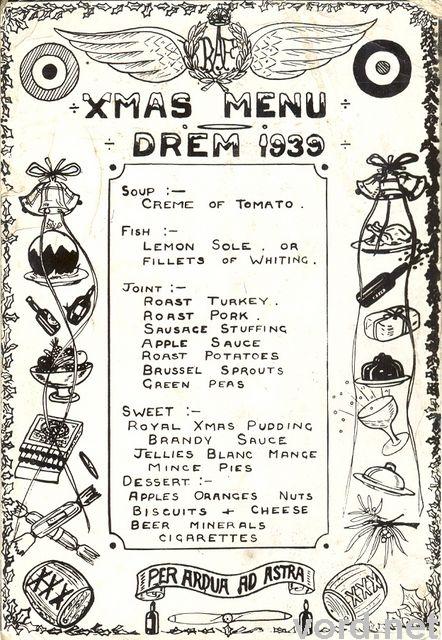 RAF
XMAS MENU
DREM 1939
SOUP :—
CREME OF TOMATO.
FISH :—
LEMON SOLE. OR
FILLETS OF WHITING.
JOINT :—
ROAST TURKEY.
ROAST PORK.
SAUSAGE STUFFING
APPLE SAUCE
ROAST POTATOES
BRUSSEL SPROUTS
GREEN PEAS
SWEET :—
ROYAL XMAS PUDDING
BRANDY SAUCE
JELLIES BLANC MANGE
MINCE PIES
DESSERT :—
APPLES ORANGES NUTS
BISCUITS + CHEESE
BEER MINERALS
CIGARETTES
XXX
PER ARDUA AD ASTRA
XXXX
vord.net